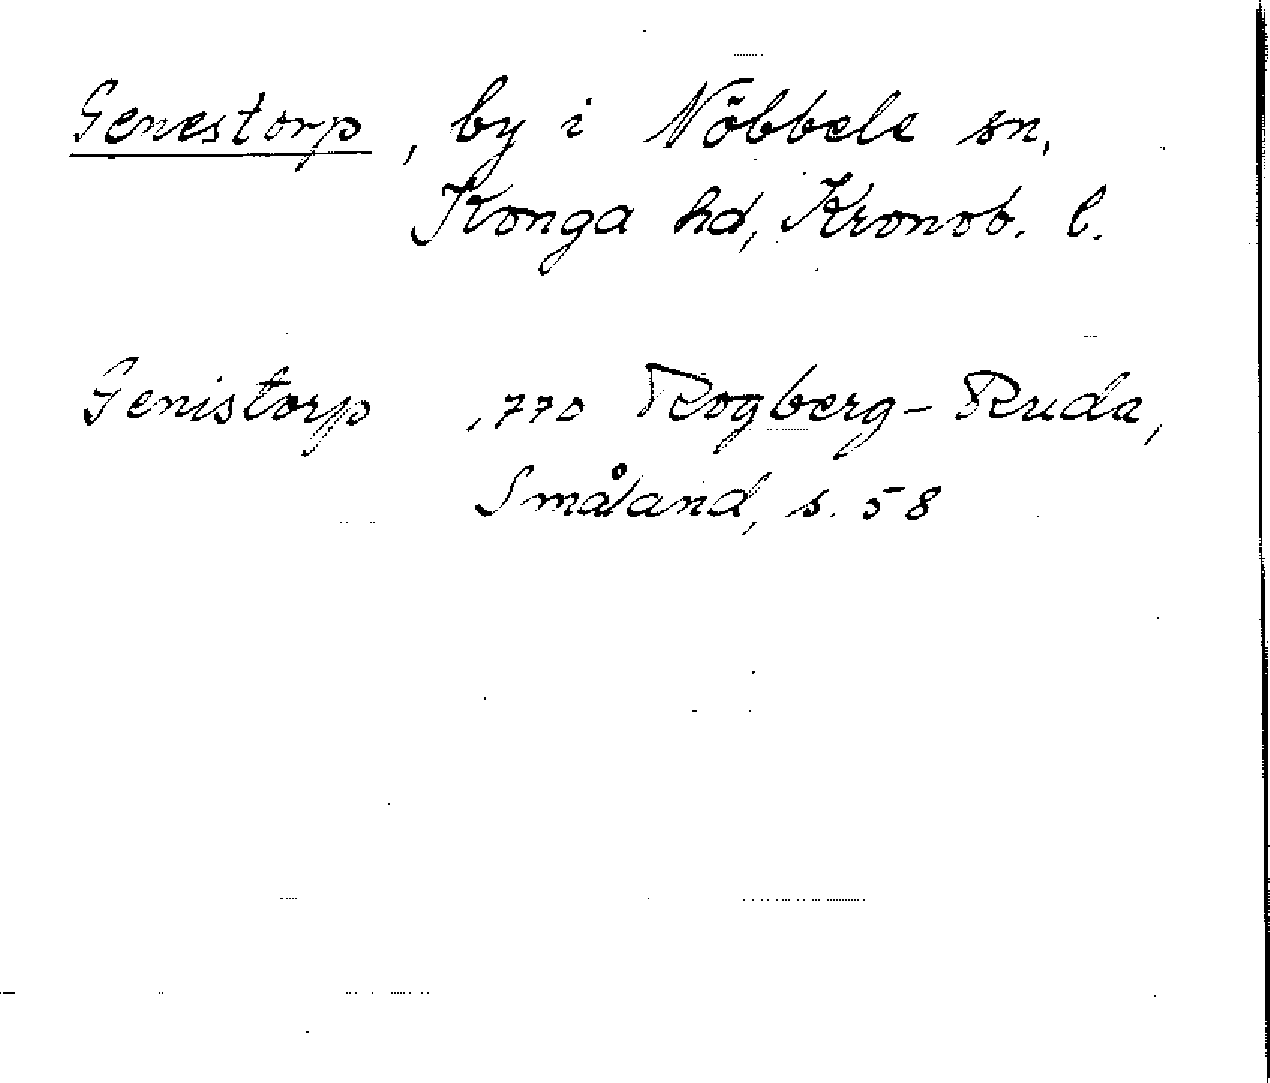 Genestorp, by i Nöbbele sn,
Konga hd, Kronob. l.
Genistorp ,770 Rogberg-Ruda,
Småland, s. 58